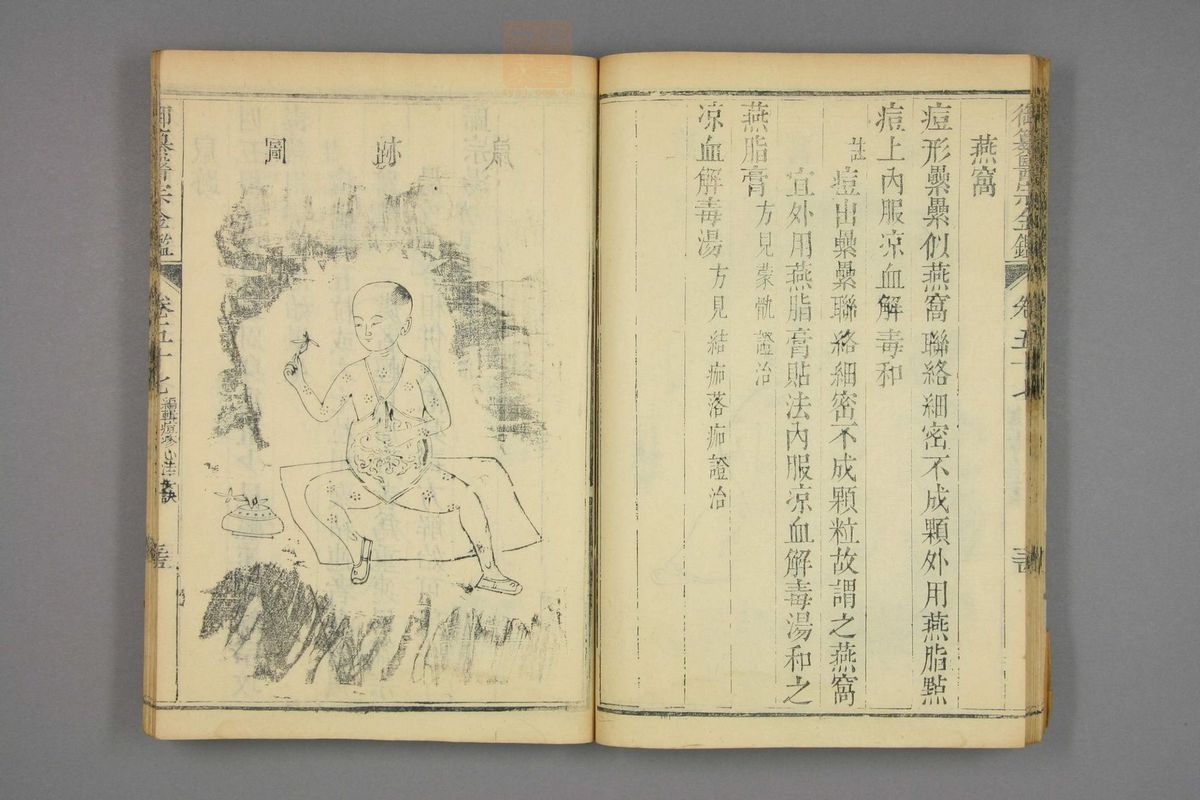 御纂醫宗金鑑
卷五十七
燕窩
痘形纍纍似燕窩聯絡細密不成顆外用燕脂點
痘上內服凉血解毒和
註痘出纍纍聯絡細密不成顆粒故謂之燕窩
宜外用燕脂膏貼法內服凉血解毒湯和之
燕脂膏方見蒙骩證治
凉血解毒湯方見結痂落痂證治
鳥跡圖
御纂醫宗金鑑
卷五十七
編輯痘疹心法要訣